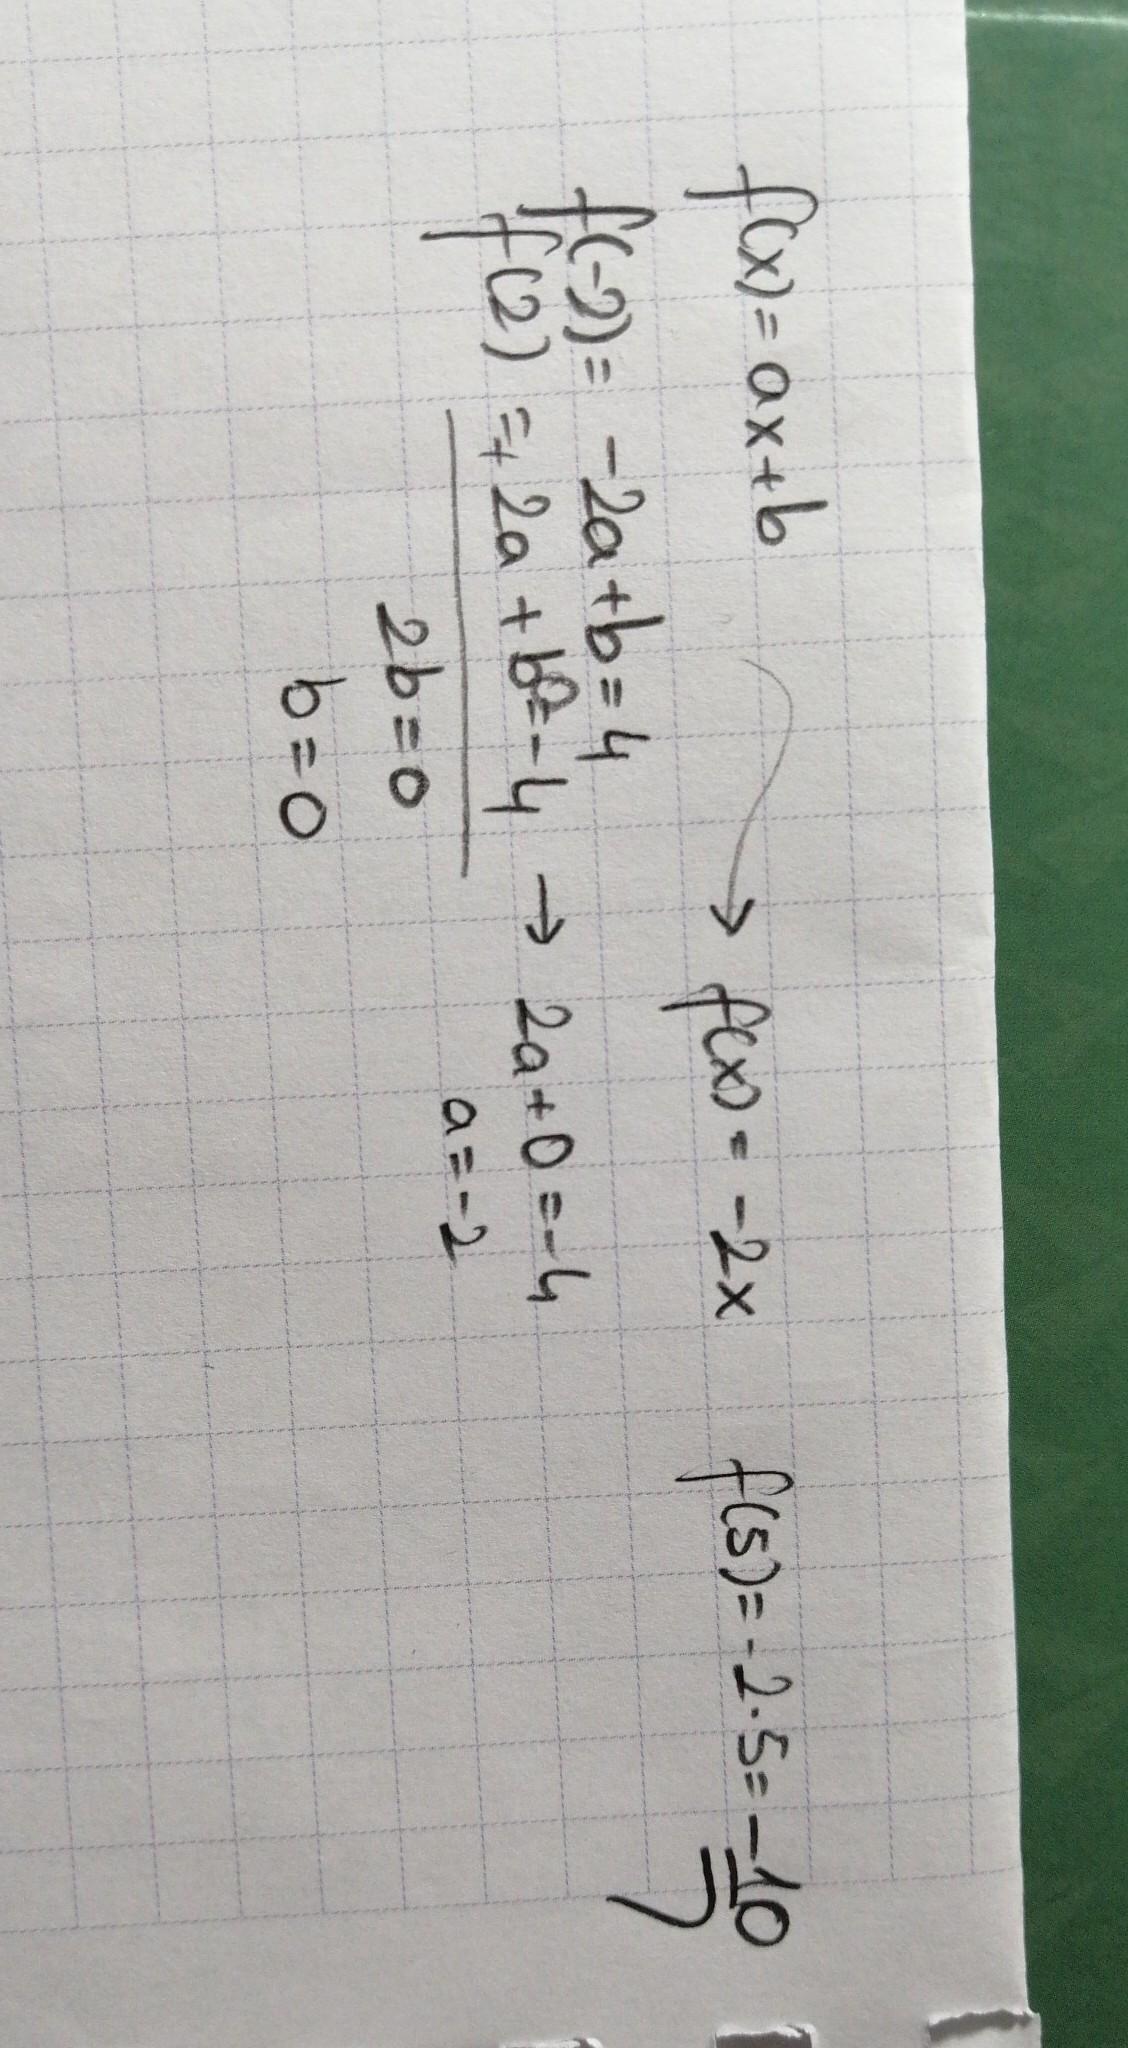 f(x) = ax+b → f(x) = -2x f(5) = -2·5 = -10
f(-2) = -2a+b=4
f(2) = + 2a + b = -4 → 2a+0 = -4
2b=0 a=-2
b=0